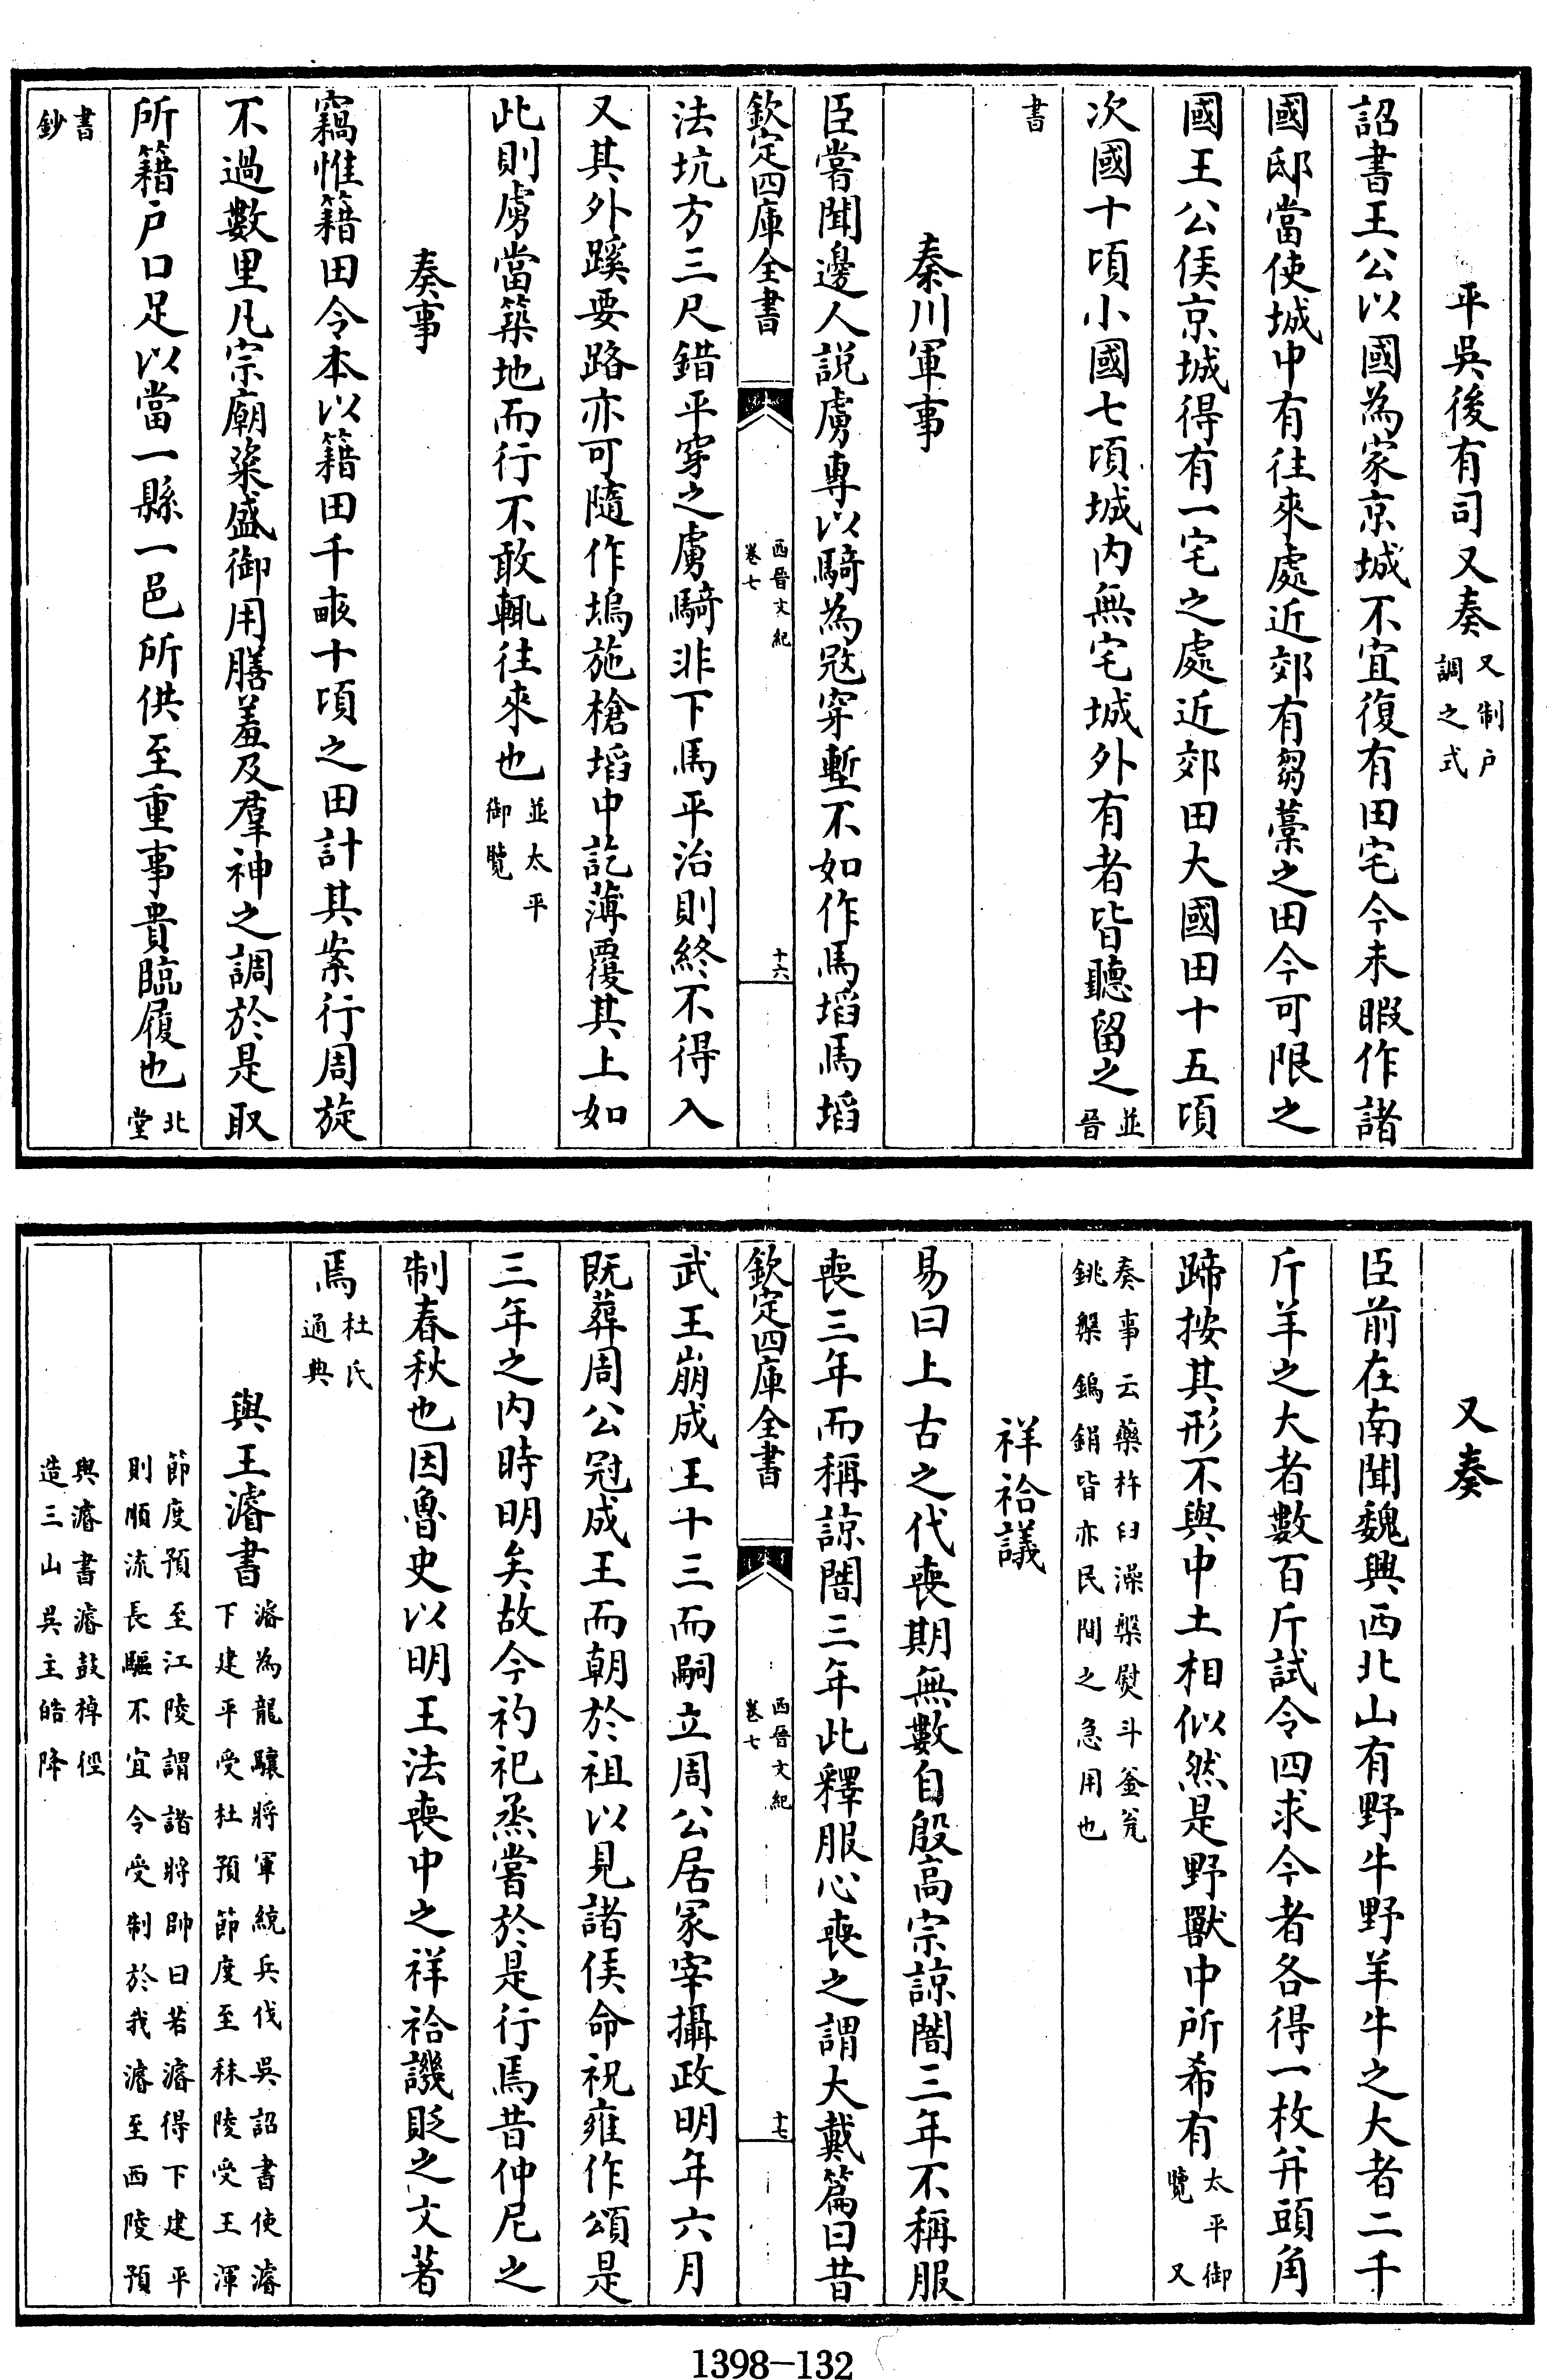 平吳後有司又奏又制户調之式
詔書王公以國為家京城不宜復有田宅今未暇作諸
國邸當使城中有往來處近郊有芻藁之田今可限之
國王公侯京城得有一宅之處近郊田大國田十五頃
次國十頃小國七頃城内無宅城外有者皆聽留之並晉
書
秦川軍事
臣嘗聞邊人説虜專以騎為寇穿塹不如作馬塪馬塪
欽定四庫全書
西晉文紀
卷七
十六
法坑方三尺錯平穿之虜騎非下馬平治則終不得入
又其外蹊要路亦可隨作塢施槍塪中訖薄覆其上如
此則虜當築地而行不敢輒往來也並太平御覽
奏事
竊惟籍田令本以籍田千畞十頃之田計其案行周旋
不過數里凡宗廟粢盛御用膳羞及羣神之調於是取
所籍户口足以當一縣一邑所供至重事貴臨履也北堂
書鈔
又奏
臣前在南聞魏興西北山有野牛野羊牛之大者二千
斤羊之大者數百斤試令四求今者各得一枚并頭角
蹄按其形不與中土相似然是野獸中所希有太平御覽又
奏事云藥杵臼澡槃熨斗釜瓮銚槃鎢錥皆亦民間之急用也
祥祫議
易曰上古之代喪期無數自殷高宗諒闇三年不稱服
喪三年而稱諒闇三年此釋服心喪之謂大戴篇曰昔
欽定四庫全書
西晉文紀
卷七
十七
武王崩成王十三而嗣立周公居冢宰攝政明年六月
既葬周公冠成王而朝於祖以見諸侯命祝雍作頌是
三年之内時明矣故今礿祀烝嘗於是行焉昔仲尼之
制春秋也因魯史以明王法喪中之祥祫譏貶之文著
焉杜氏通典
與王濬書濬為龍驤將軍統兵伐吳詔書使濬下建平受杜預節度至秣陵受王渾
節度預至江陵謂諸將帥曰若濬得下建平則順流長驅不宜令受制於我濬至西陵預
與濬書濬鼓棹徑造三山吳主皓降
1398-132